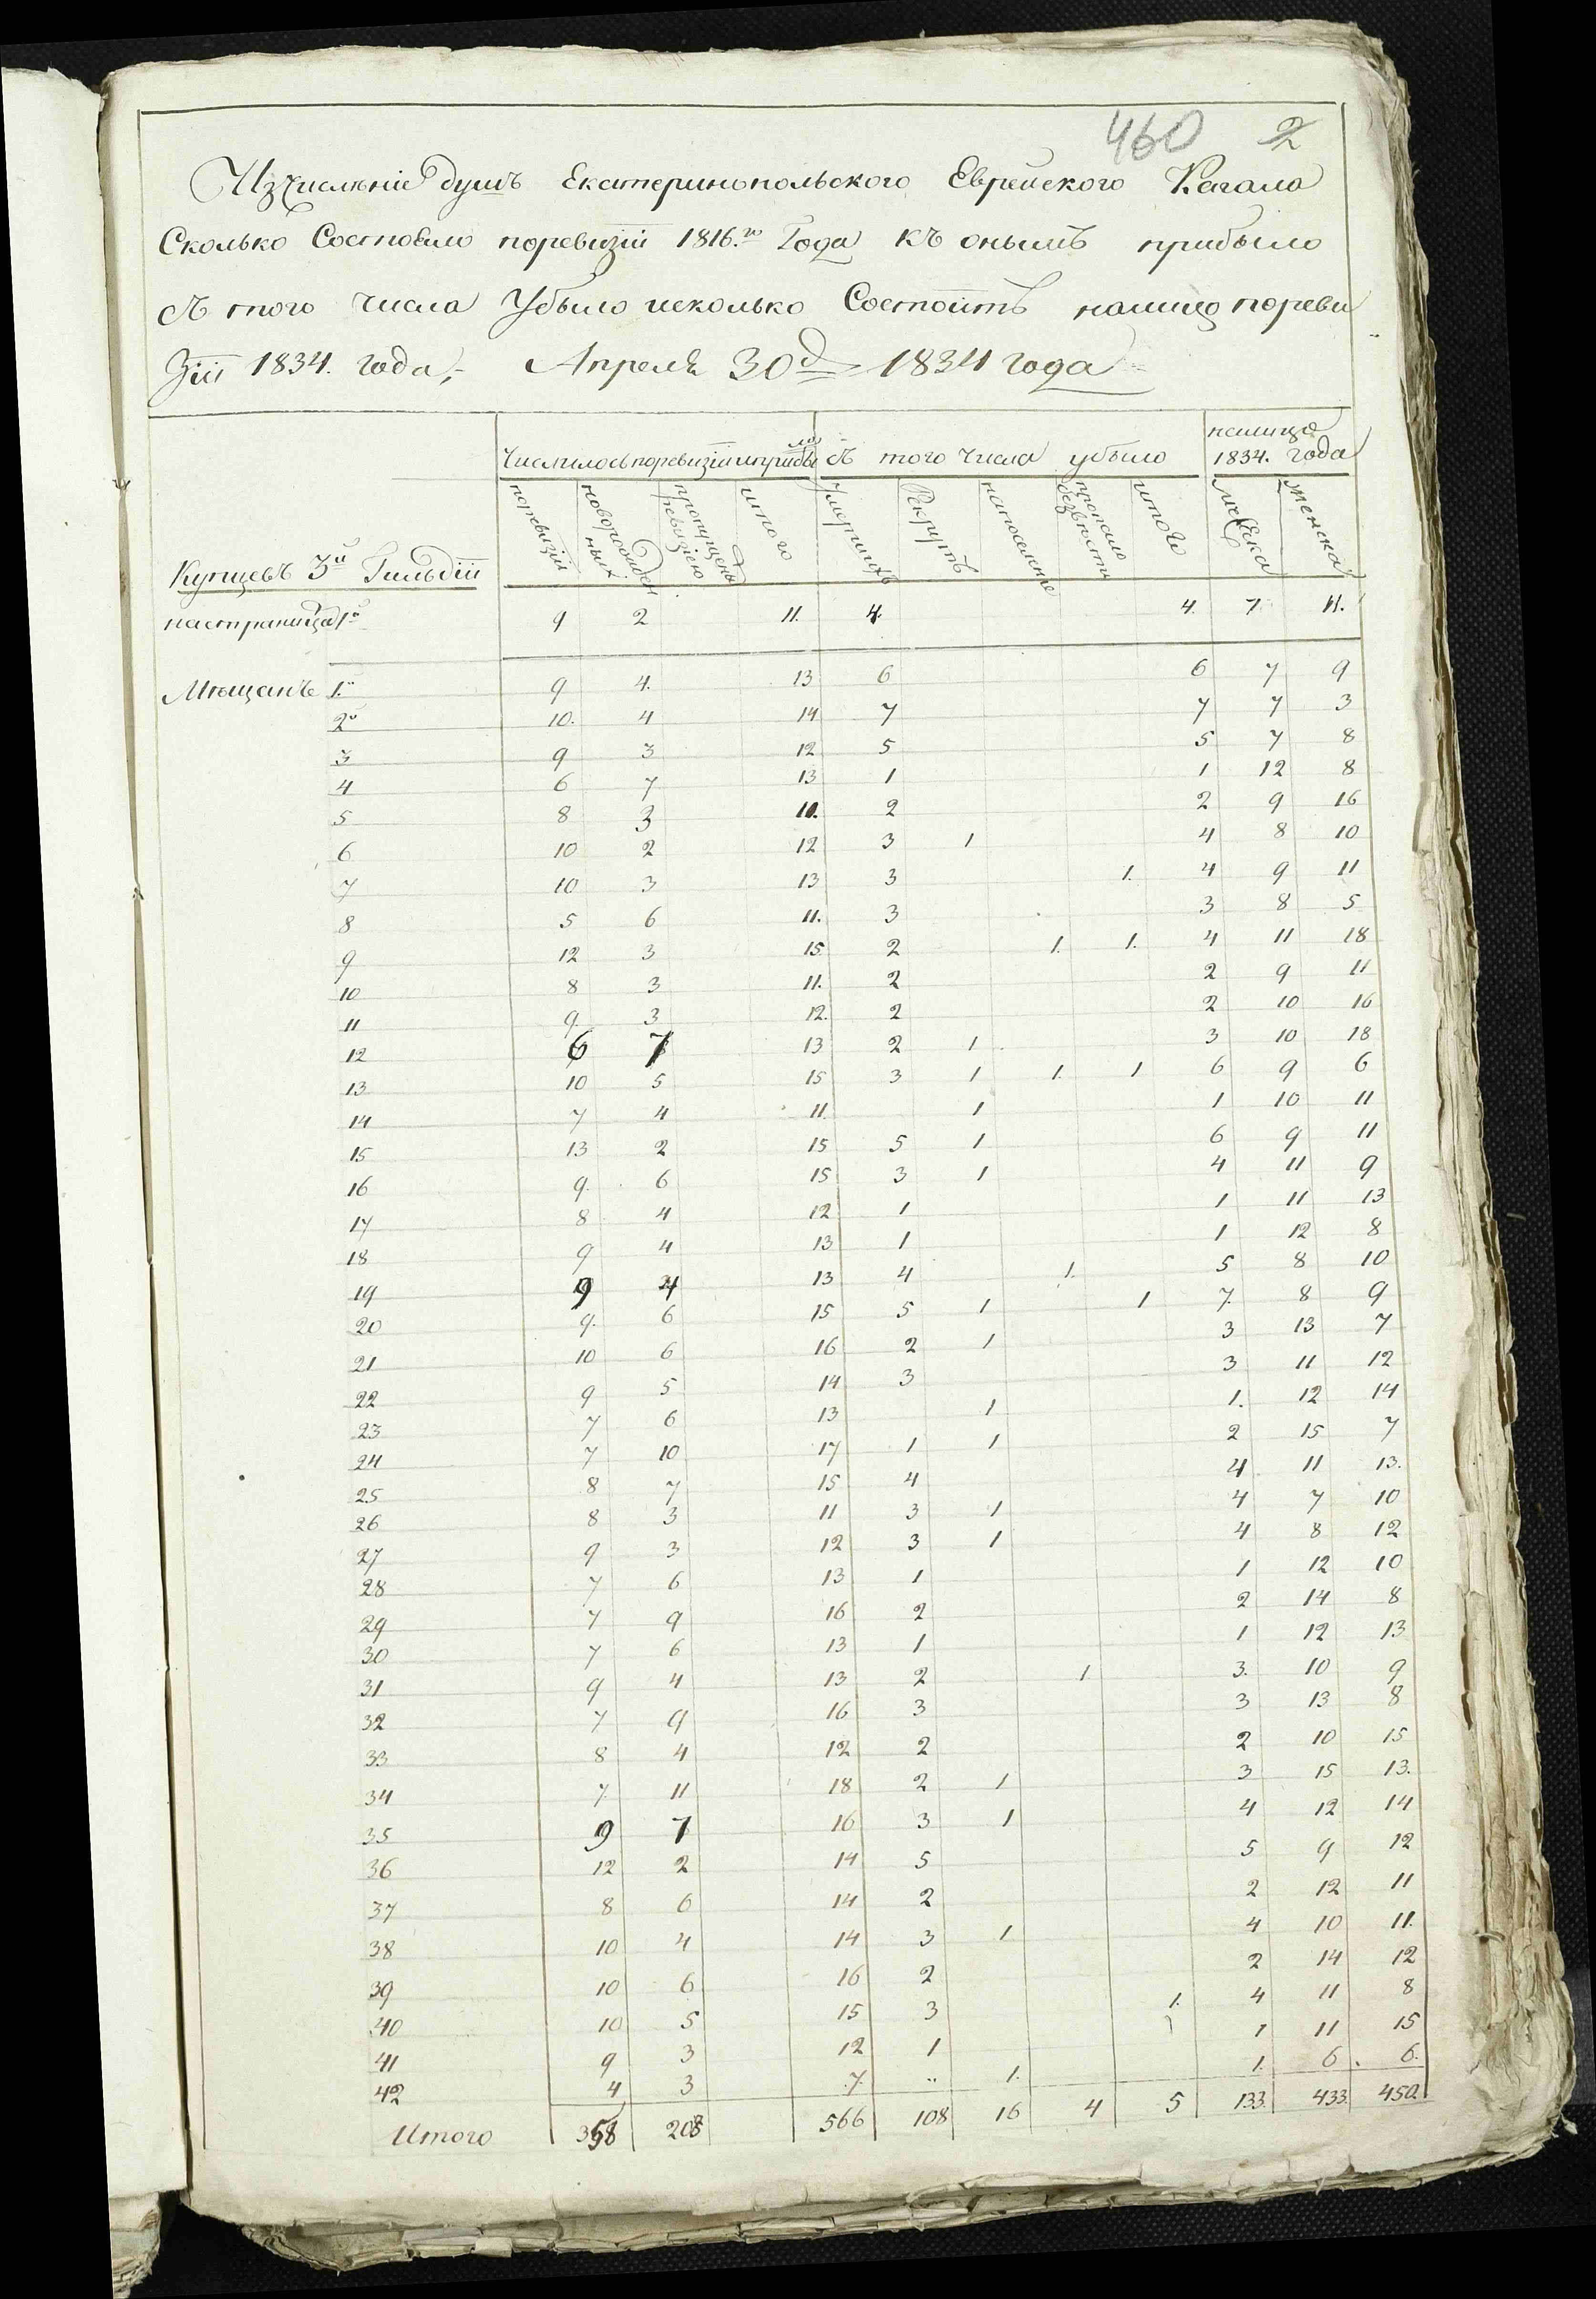 460 2
Изчисленіе душъ Екатеринопольского Еврейского Кагала
Сколько Состояло поревизіи 1816.го Года къ онымъ прибыло
съ того числа Убыло исколько Состоитъ налицо пореви
Зіи 1834. года,- Апреля 30д 1834 года
Числилось поревизіи иприбыло съ того числа убыло налицо 1834. года
поревизіи новорожденных пропущены ревизіею итого Умершихъ Рекрутъ напоселение пропало безвѣсти итого мужска женска
Купцевъ 3й Гильдіи
настраница 1я 9 2 11. 4. 4. 7 11.
Мещанъ 1.я 9 4. 13 6 6 7 9
2я 10. 4 14 7 7 7 3
3 9 3 12 5 5 7 8
4 6 7 13 1 1 12 8
5 8 3 10. 2 2 9 16
6 10 2 12 3 1 4 8 10
7 10 3 13 3 1. 4 9 11
8 5 6 11. 3 3 8 5
9 12 3 15 2 1. 1. 4 11 18
10 8 3 11. 2 2 9 11
11 9. 3 12. 2 2 10 16
12 6 7 13 2 1 3 10 18
13 10 5 15 3 1 1. 1 6 9 6
14 7 4 11. 1 1 10 11
15 13 2 15 5 1 6 9 11
16 9. 6 15 3 1 4 11 9
17 8 4 12 1 1 11 13
18 9 4 13 1 1 12 8
19 9 4 13 4 1. 5 8 10
20 9. 6 15 5 1 1 7. 8 9
21 10 6 16 2 1 3 13 7
22 9 5 14 3 3 11 12
23 7 6 13 1 1. 12 14
24 7 10 17 1 1 2 15 7
25 8 7 15 4 4 11 13.
26 8 3 11 3 1 4 7 10
27 9 3 12 3 1 4 8 12
28 7 6 13 1 1 12 10
29 7 9 16 2 2 14 8
30 7 6 13 1 1 12 13
31 9 4 13 2 1 3. 10 9
32 7 9 16 3 3 13 8
33 8 4 12 2 2 10 15
34 7. 11 18 2 1 3 15 13.
35 9 7 16 3 1 4 12 14
36 12 2 14 5 5 9 12
37 8 6 14 2 2 12 11
38 10 4 14 3 1 4 10 11.
39 10 6 16 2 2 14 12
40 10 5 15 3 1. 4 11 8
41 9 3 12 1 1 11 15
42 4 3 7. .. 1. 1. 6. 6.
Итого 358 208 566 108 16 4 5 133. 433. 450.